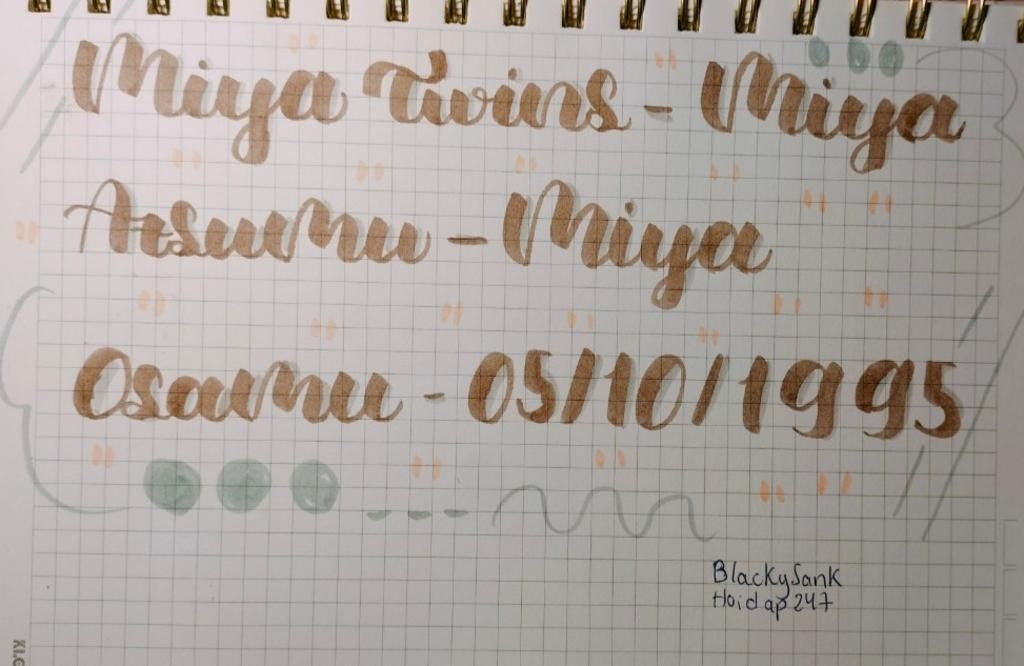 Miya Twins - Miya
Atsumu - Miya
Osamu - 05/10/1995
BlackySank
Hoidap247